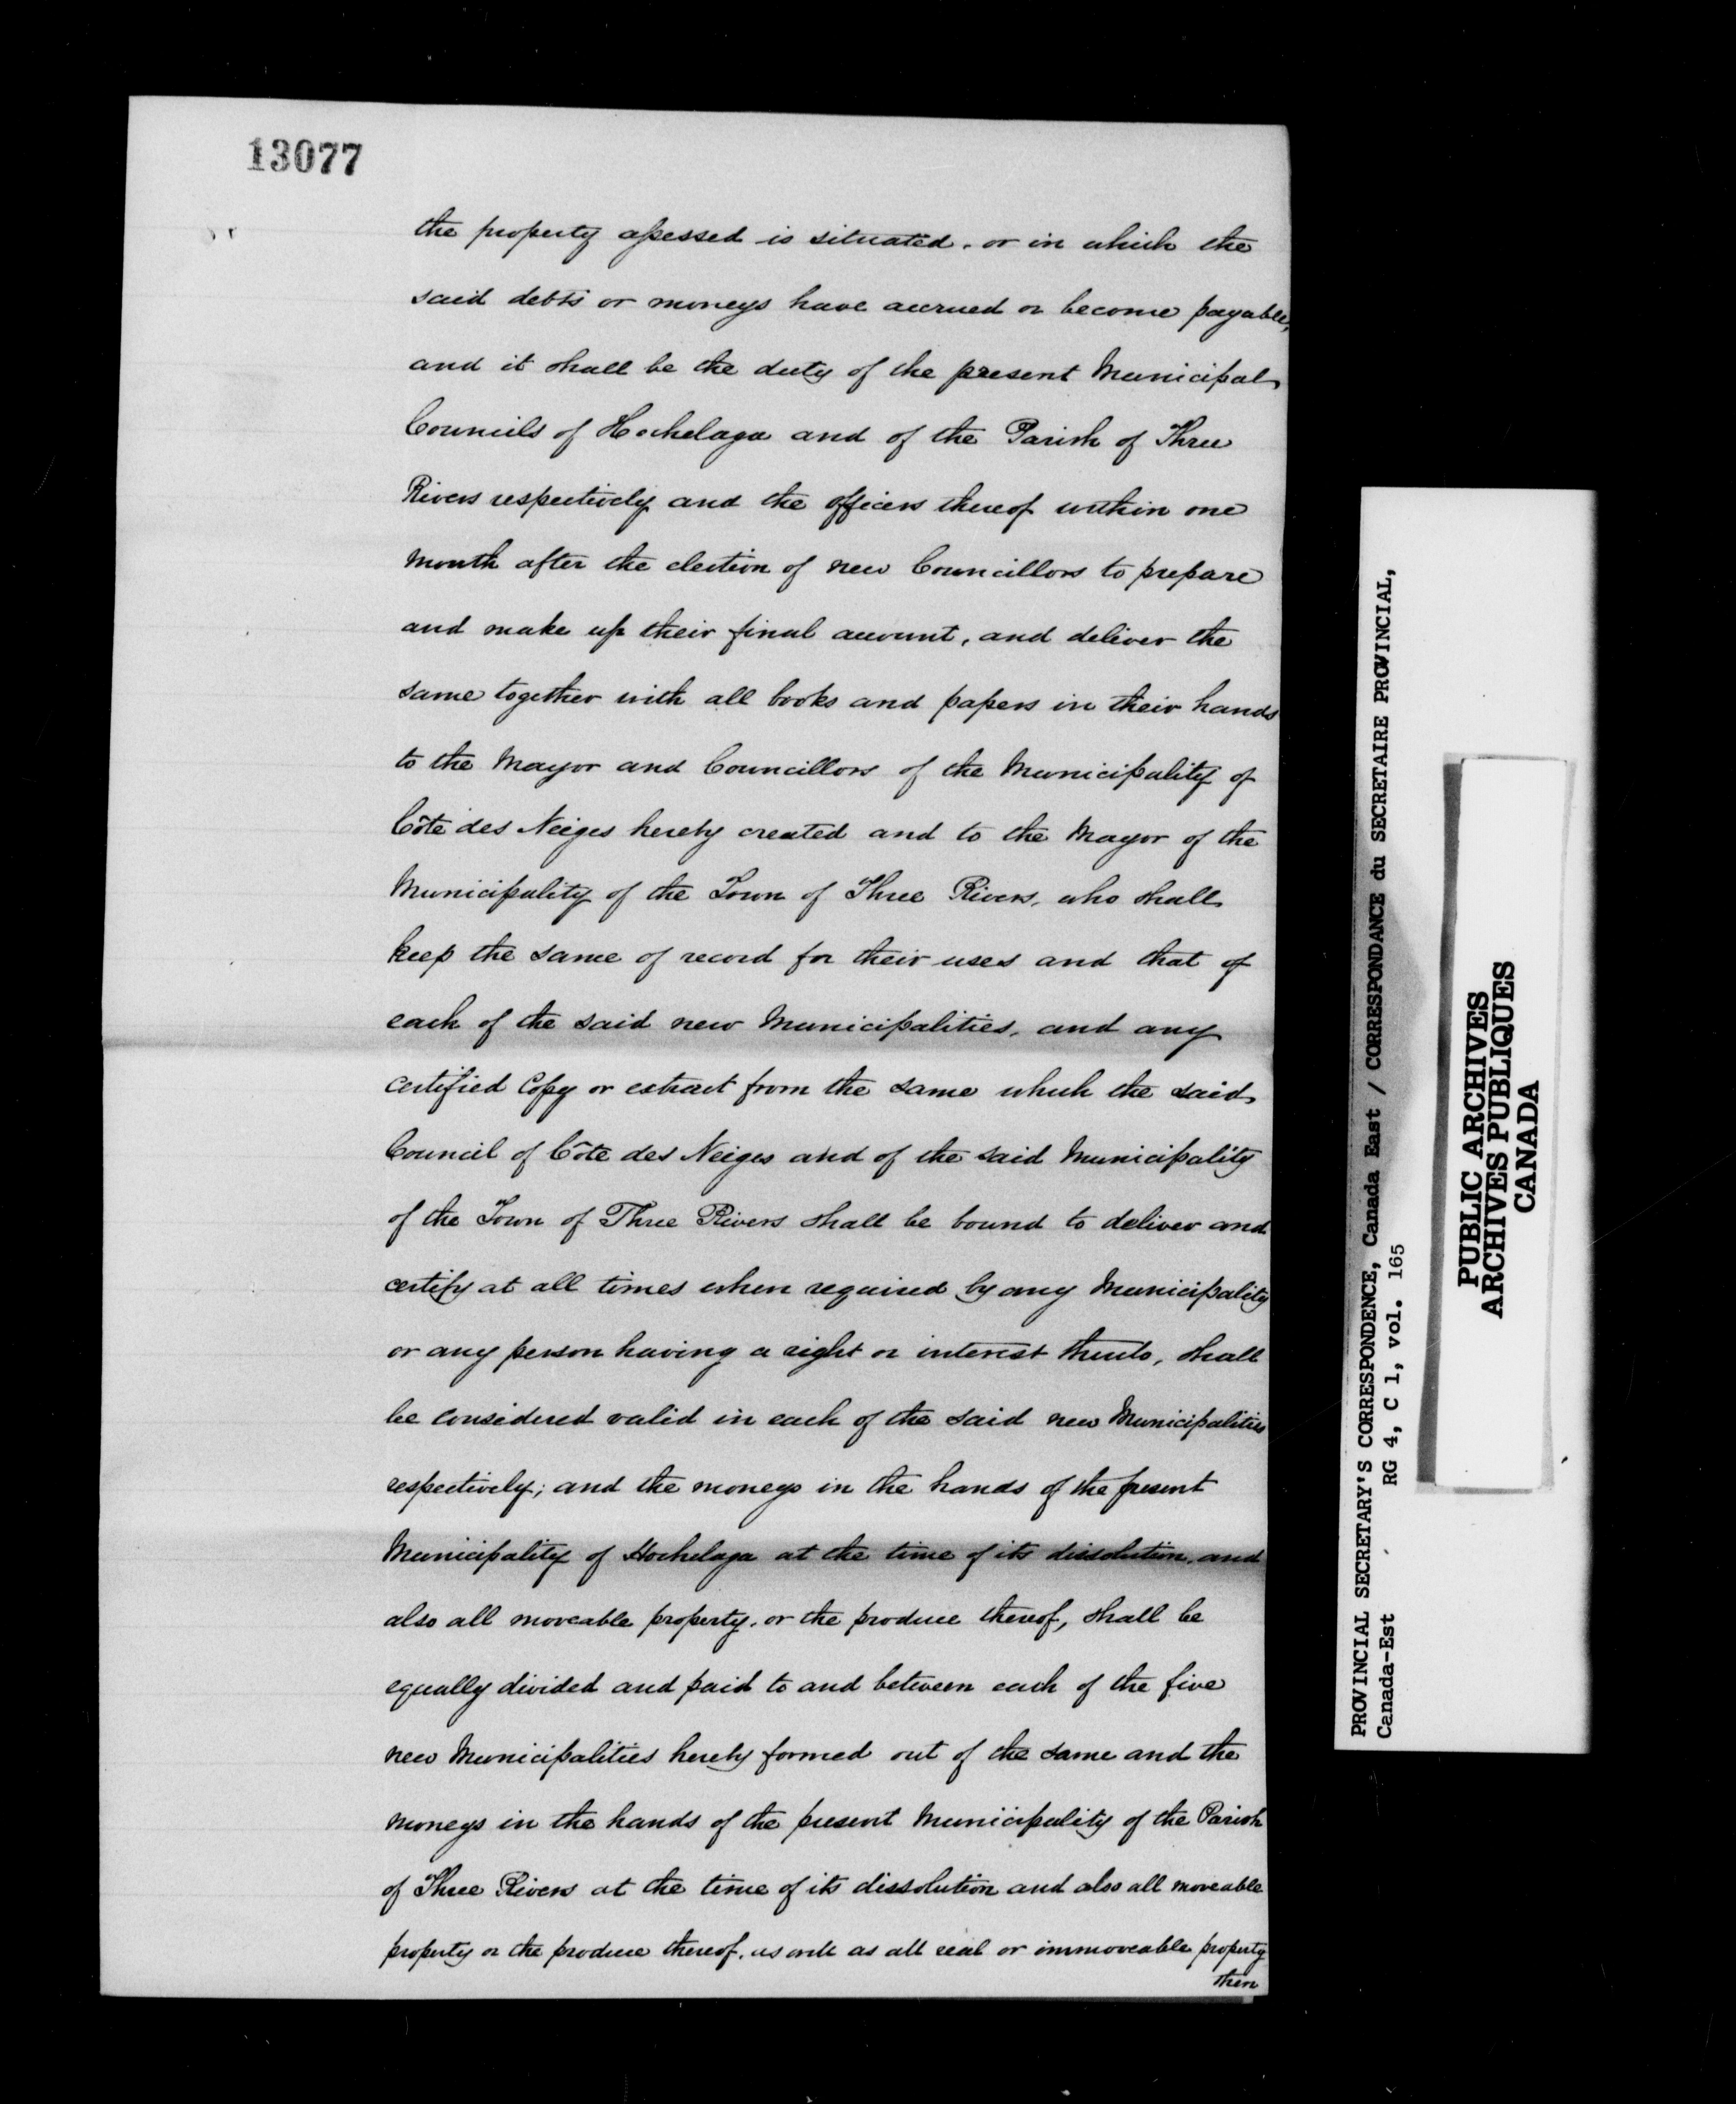 13077
the property assessed is situated, or in which the
said debts or moneys have accrued or become payable,
and it shall be the duty of the present Municipal
Councils of Hochelaga and of the Parish of Three
Rivers respectively and the officers thereof within one
month after the election of new Councillors to prepare
and make up their final account, and deliver the
same together with all books and papers in their hands
to the Mayor and Councillors of the Municipality of
Côte des Neiges hereby created and to the Mayor of the
Municipality of the Town of Three Rivers, who shall
keep the same of record for their uses and that of
each of the said new Municipalities, and any
certified Copy or extract from the same which the said
Council of Côte des Neiges and of the said Municipality
of the Town of Three Rivers shall be bound to deliver and
certify at all times when required by any Municipality
or any person having a right or interest thereto, shall
be considered valid in each of the said new Municipalities
respectively; and the moneys in the hands of the present
Municipality of Hochelaga at the time of its dissolution, and
also all moveable property, or the produce thereof, shall be
equally divided and paid to and between each of the five
new Municipalities hereby formed out of the same and the
moneys in the hands of the present Municipality of the Parish
of Three Rivers at the time of its dissolution and also all moveable
property or the produce thereof, as well as all real or immoveable property
then
PROVINCIAL SECRETARY'S CORRESPONDENCE, Canada East / CORRESPONDANCE du SECRETAIRE PROVINCIAL,
Canada-Est RG 4, C 1, vol. 165
PUBLIC ARCHIVES
ARCHIVES PUBLIQUES
CANADA